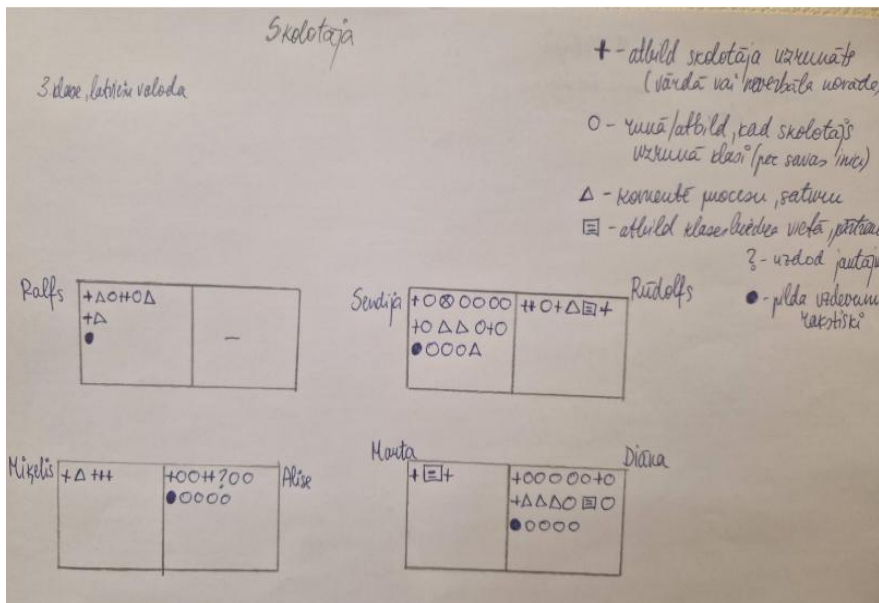 Skolotāja
3 klase, latviešu valoda
+ - atbild skolotāja uzrunāts
(vārdā vai neverbāla norāde,
O - runā/atbild, kad skolotājs
uzrunā klasi (pēc savas inici)
△ - komentē procesu, saturu
- atbild klasesbiedra vietā,
? - uzdod jautāju
● - pilda uzdevumu
rakstiski
Ralfs
+△O++O△
+△
●
-
Sendija
+O⊗OOOO
+O△△O+O
●OOO△
++O+△▤+
Rūdolfs
Miķelis
+△+++
+OO++?OO
●OOOO
Alise
Marta
+▤+
+OOOOO+O
+△△△O▤O
●OOOO
Diāna